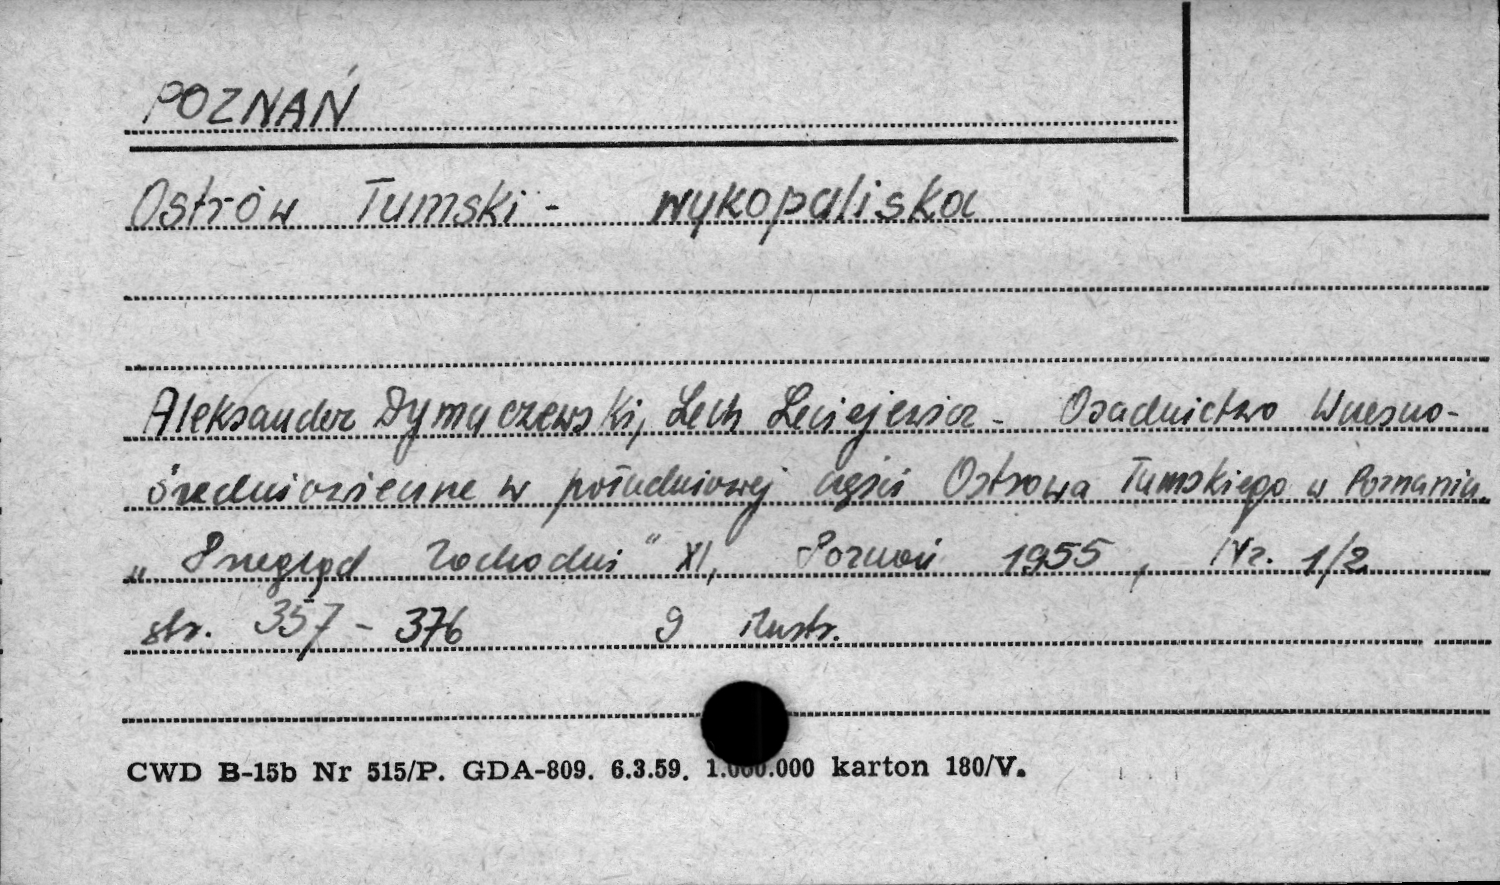 POZNAŃ
Ostrów Tumski - wykopaliska
Aleksander Dymaczewski, Lech Leciejewicz - Osadnictwo Wczesno-
średniowieczne w południowej części Ostrowa Tumskiego w Poznaniu.
„Przegląd Zachodni" XI, Poznań 1955, Nr. 1/2
str. 357 - 376 9 ilustr.
CWD B-15b Nr 515/P. GDA-809. 6.3.59. 1.000.000 karton 180/V.